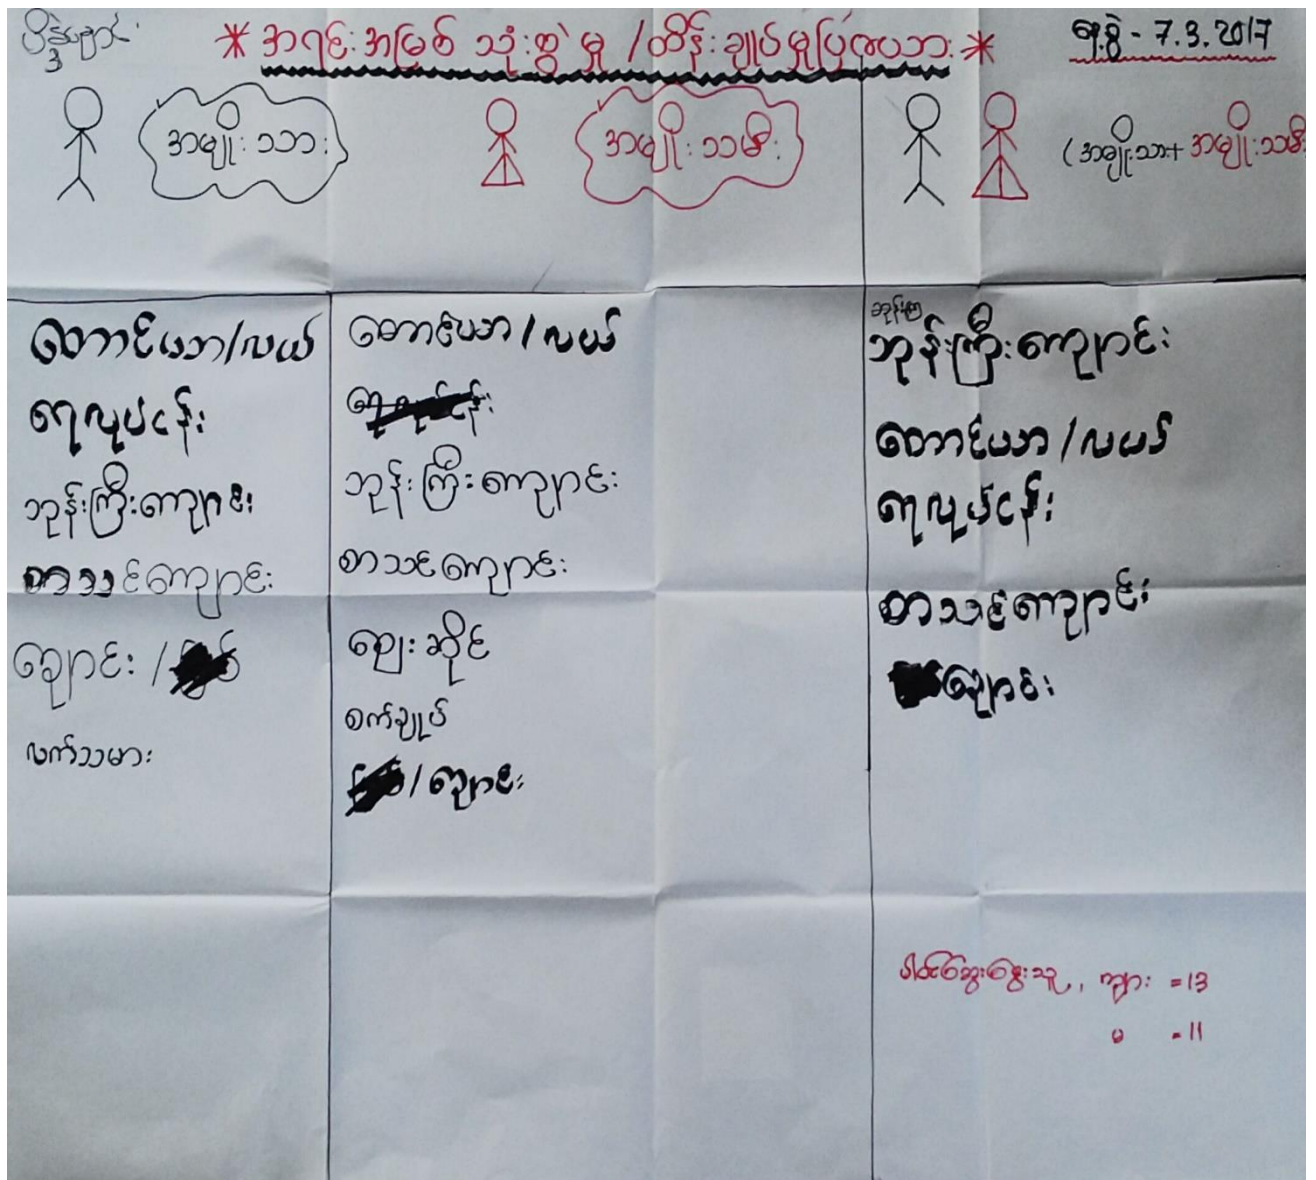 * အရင်းအမြစ် သုံးစွဲမှု / ထိန်းချုပ်မှုပြဇယား *
ရက်စွဲ - 7.3.2017
အမျိုးသား
အမျိုးသမီး
(အမျိုးသား + အမျိုးသမီး
တောင်ယာ/လယ်
ရေလုပ်ငန်း
ဘုန်းကြီးကျောင်း
စာသင်ကျောင်း
ချောင်း /
လက်သမား
တောင်ယာ/လယ်
ဘုန်းကြီးကျောင်း
စာသင်ကျောင်း
ဈေးဆိုင်
စက်ချုပ်
/ ချောင်း
ဘုန်းကြီးကျောင်း
တောင်ယာ/လယ်
ရေလုပ်ငန်း
စာသင်ကျောင်း
ချောင်း
ပါဝင်ဆွေးနွေးသူ, ကျား = 13
မ = 11